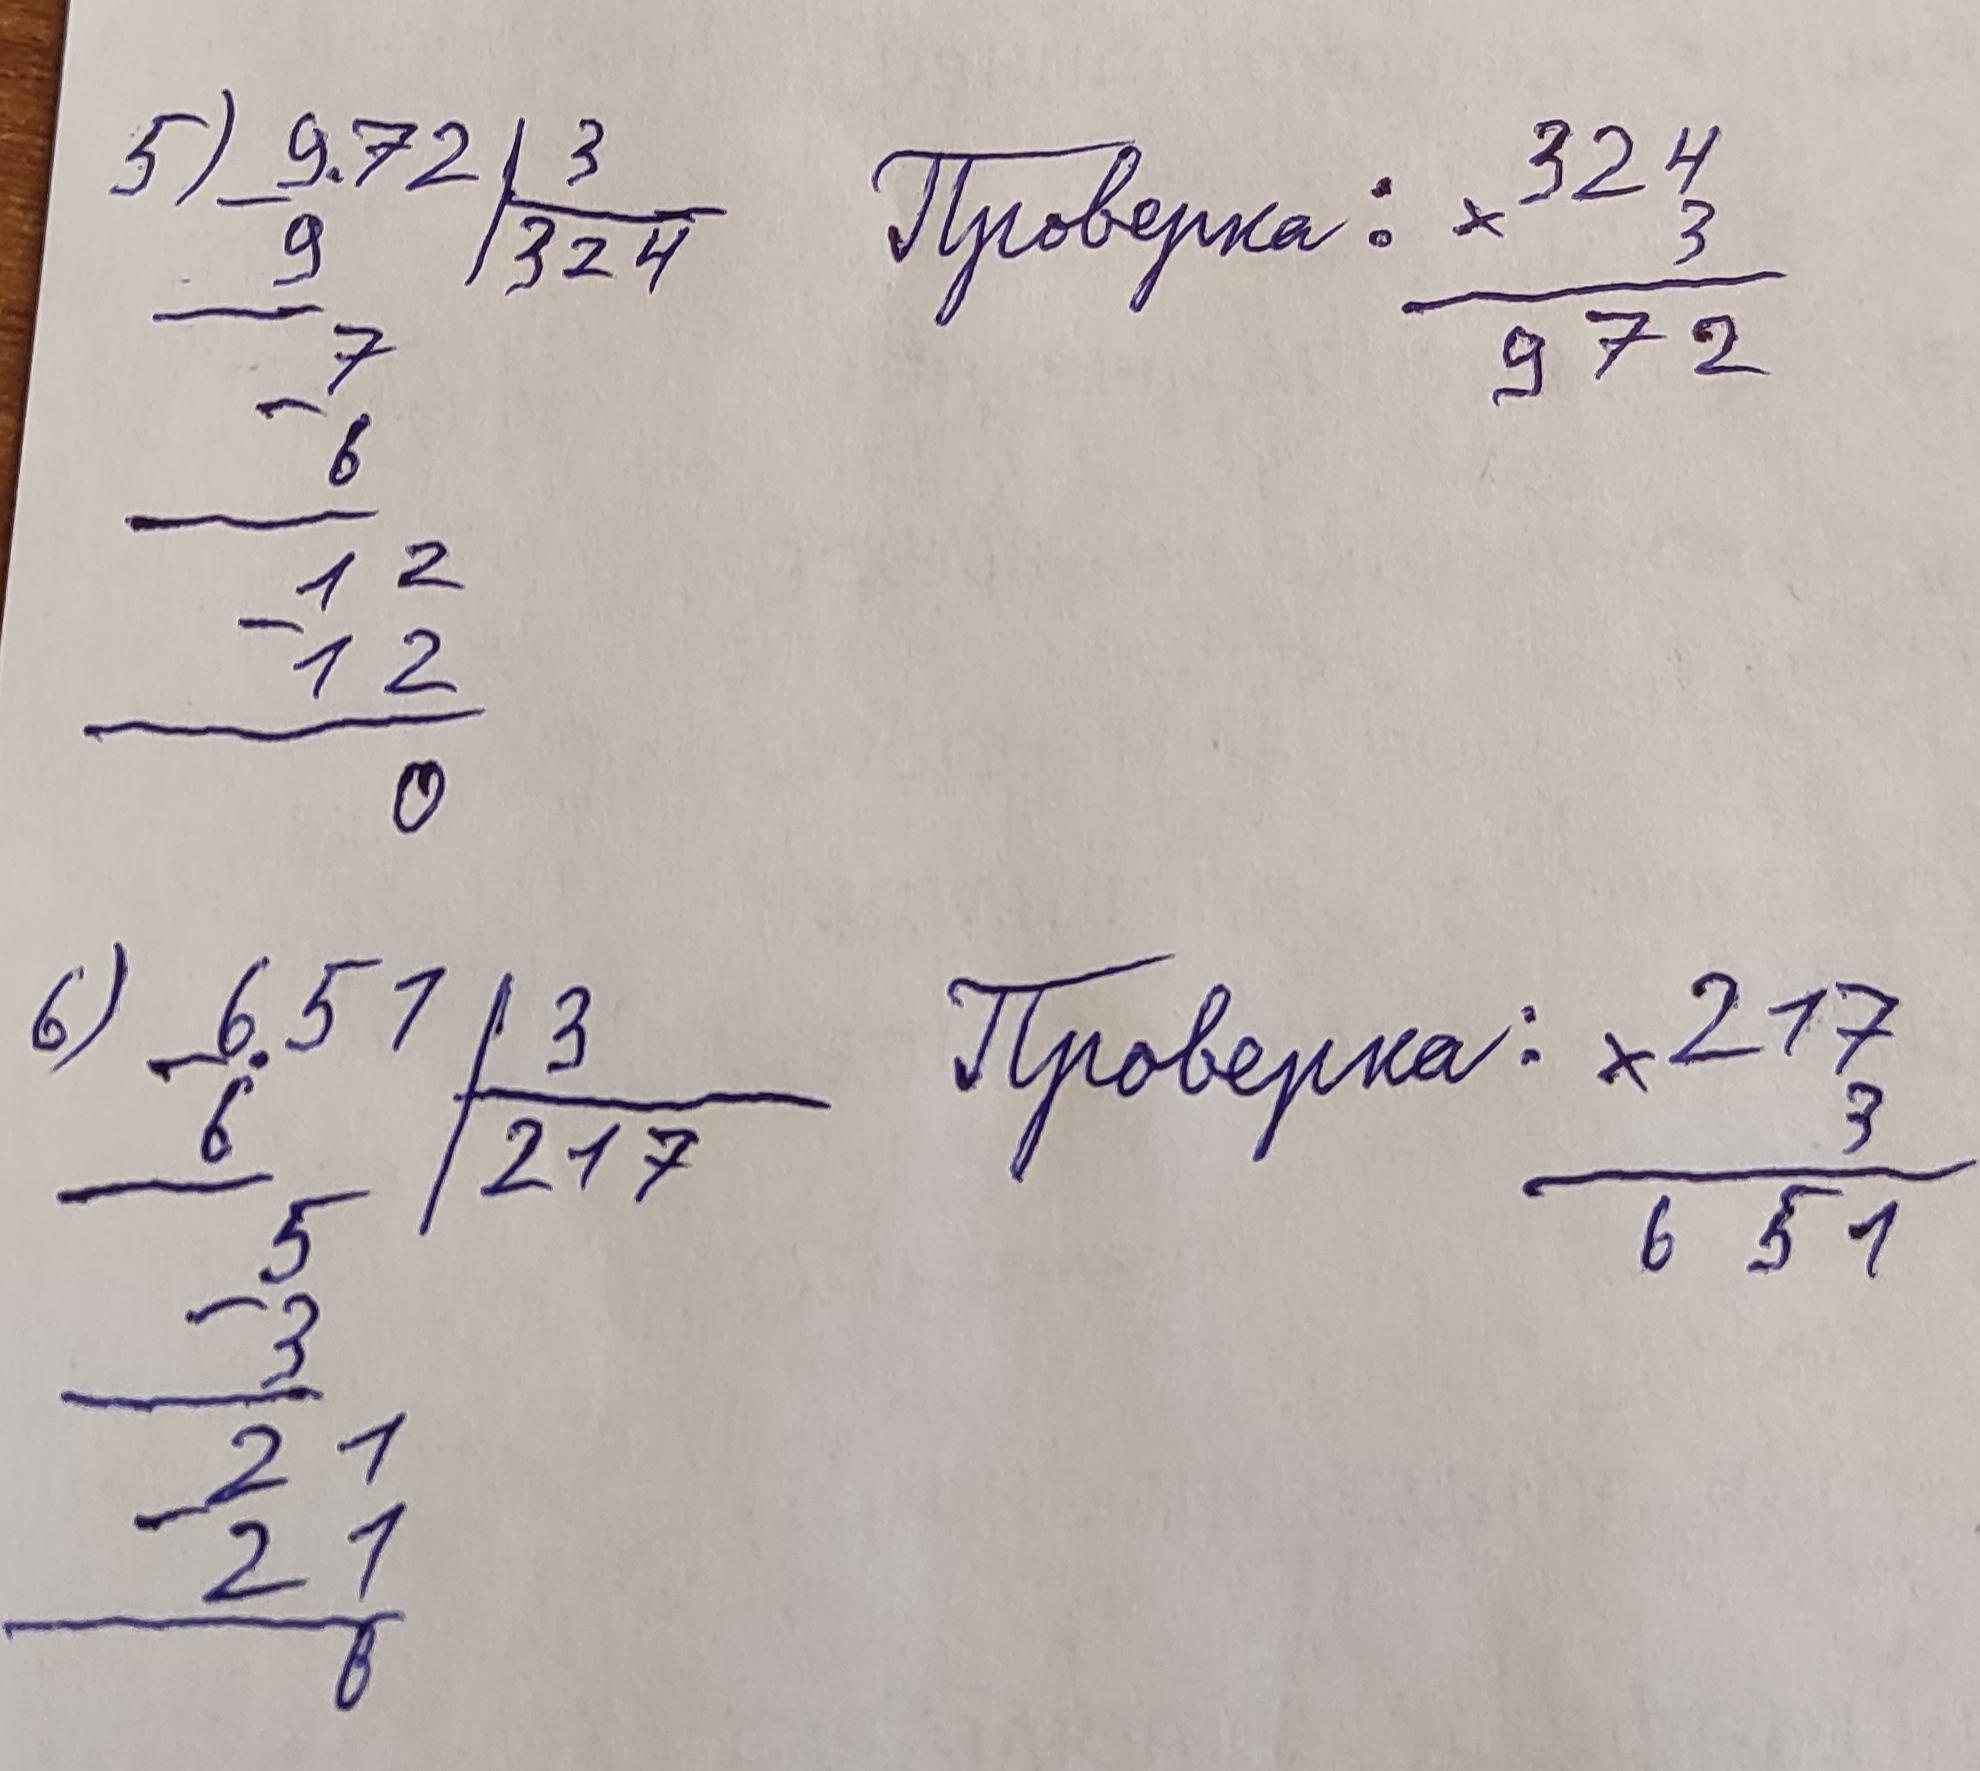 5) 9.72 | 3 Проверка: × 324
− 9 324 3
7 972
− 6
12
− 12
0
6) 6.51 | 3 Проверка: × 217
− 6 217 3
5 651
− 3
21
− 21
0